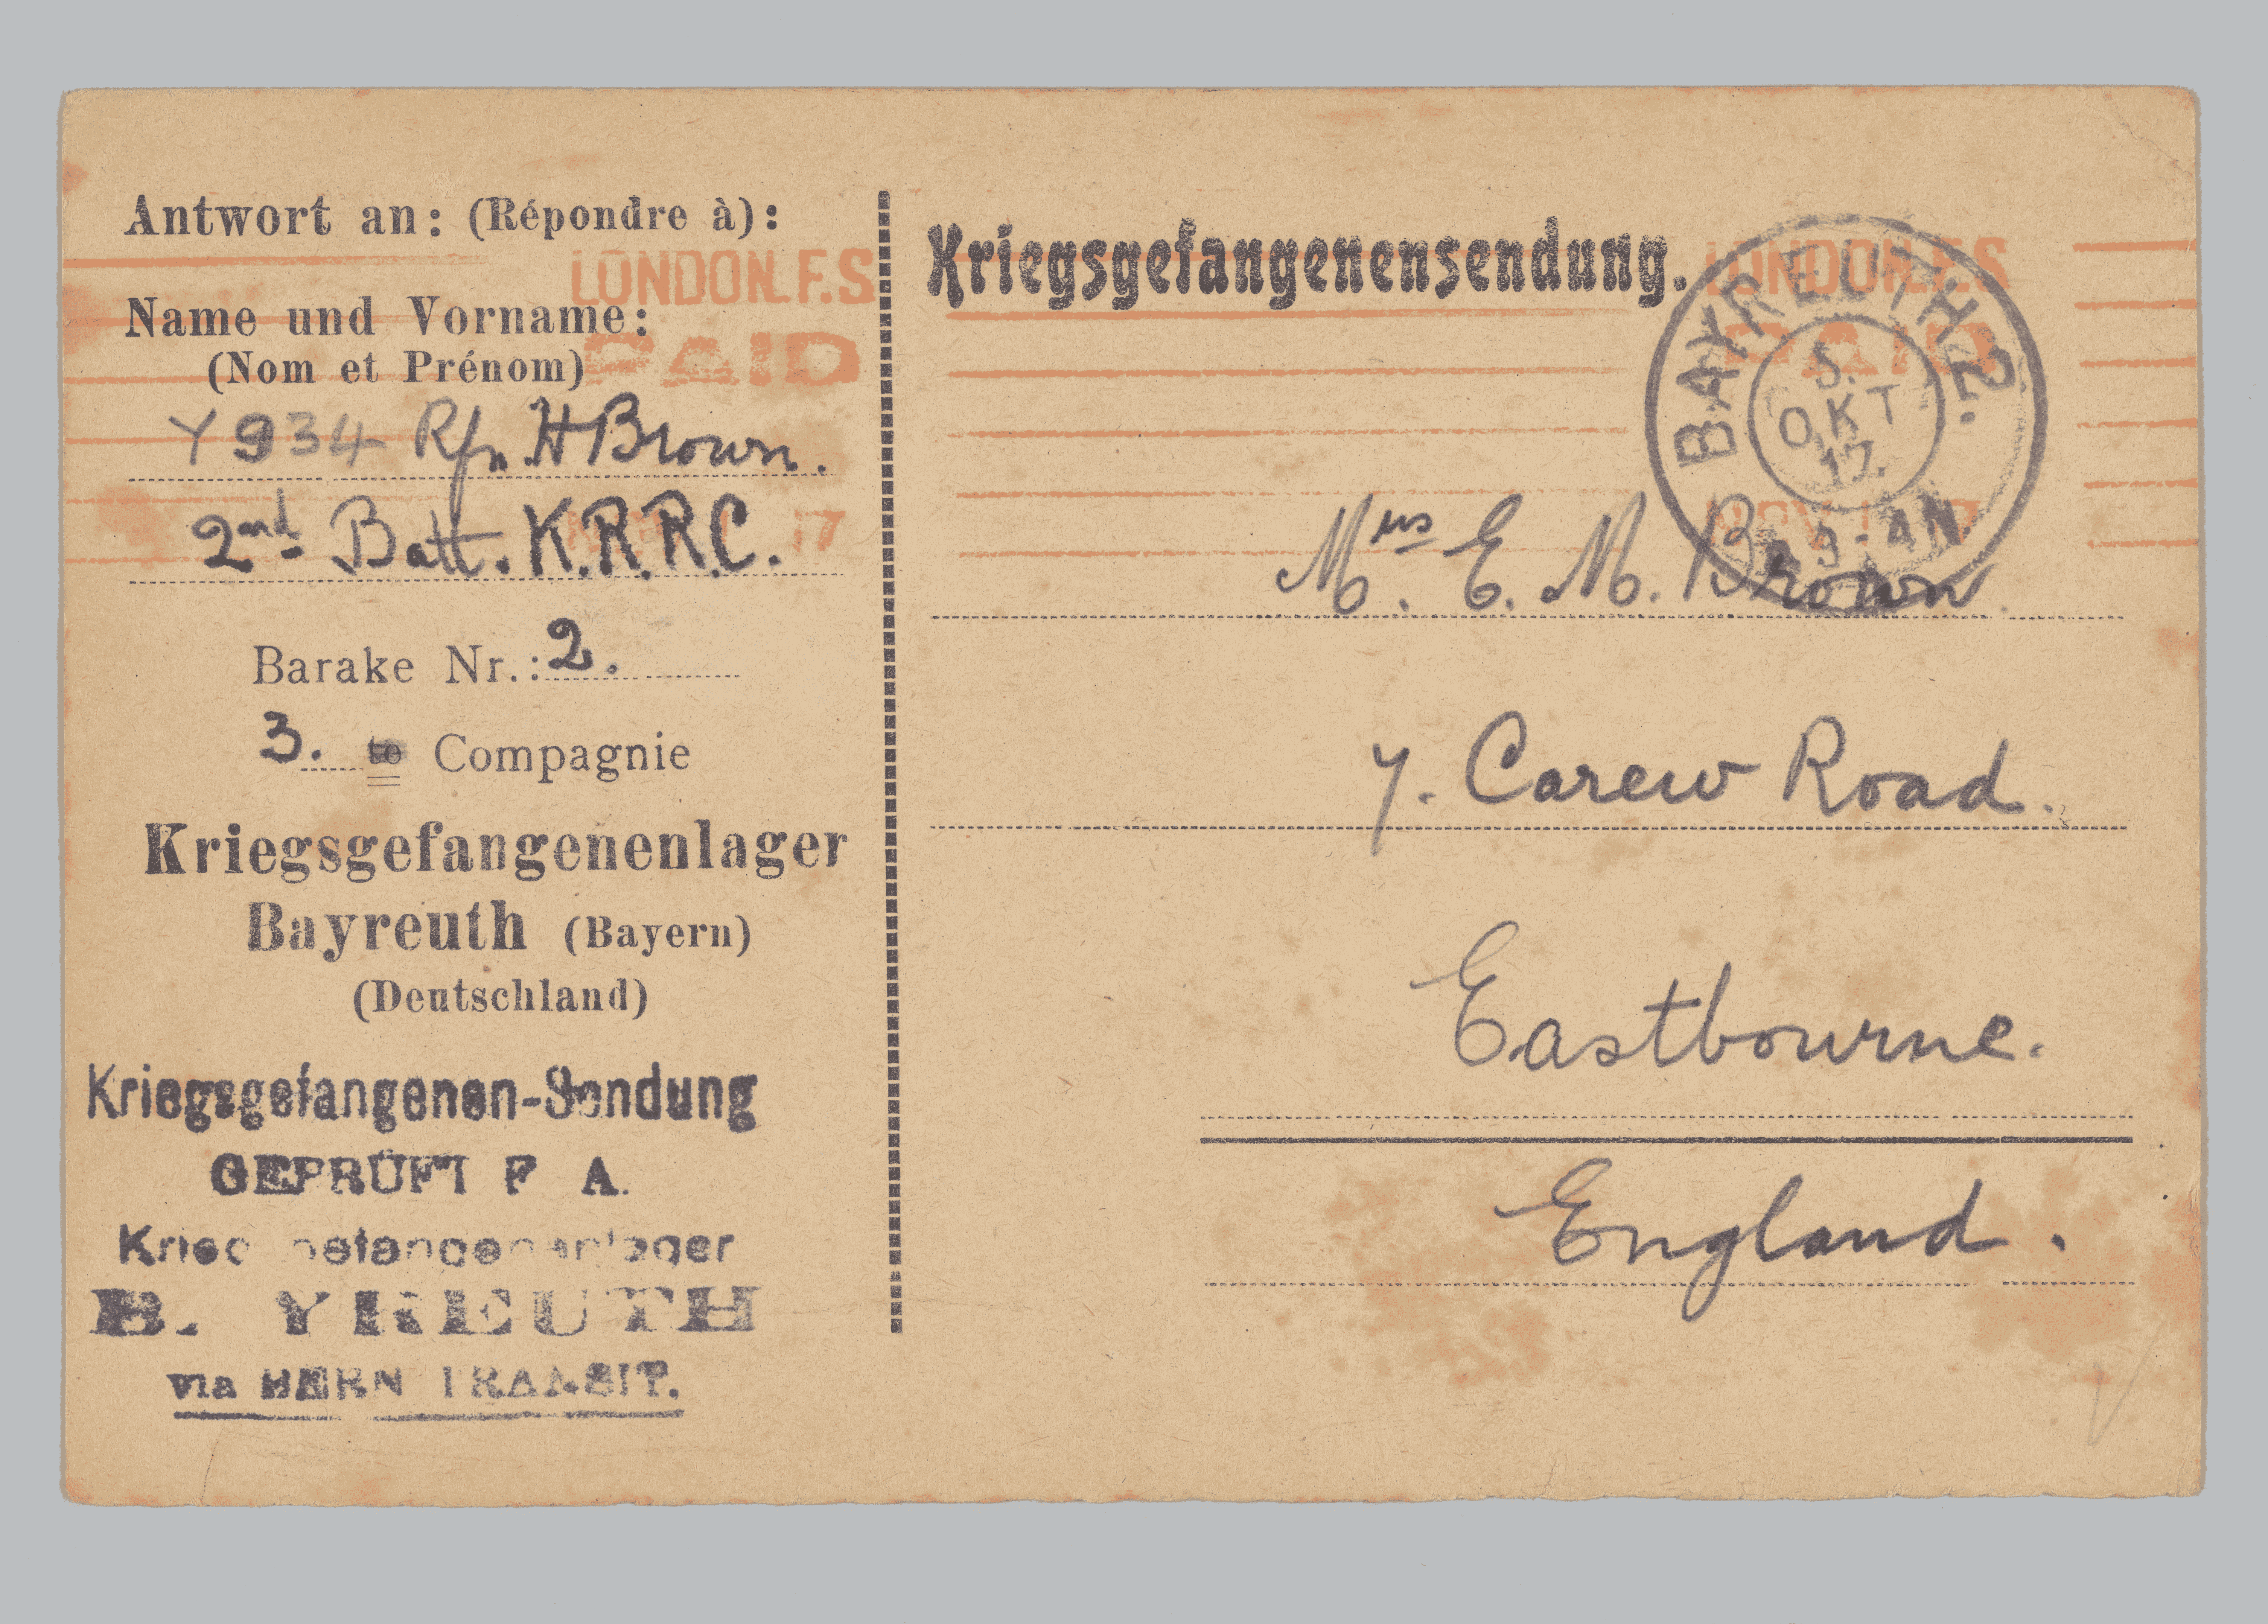 Antwort an: (Répondre à):
LONDON.F.S
PAID
17
Name und Vorname:
(Nom et Prénom)
Y 934 Rfn. H Brown.
2nd Batt. K.R.R.C.
Barake Nr.: 2.
3. te Compagnie
Kriegsgefangenenlager
Bayreuth (Bayern)
(Deutschland)
Kriegsgefangenen-Sendung
GEPRÜFT F A.
Kriegsgefangenenlager
B. YREUTH
via BERN TRANSIT.
Kriegsgefangenensendung.
LONDON.F.S
PAID
NOV 17
BAYREUTH 2.
5.
OKT
17.
Mrs. E. M. Brown.
7. Carew Road.
Eastbourne.
England.